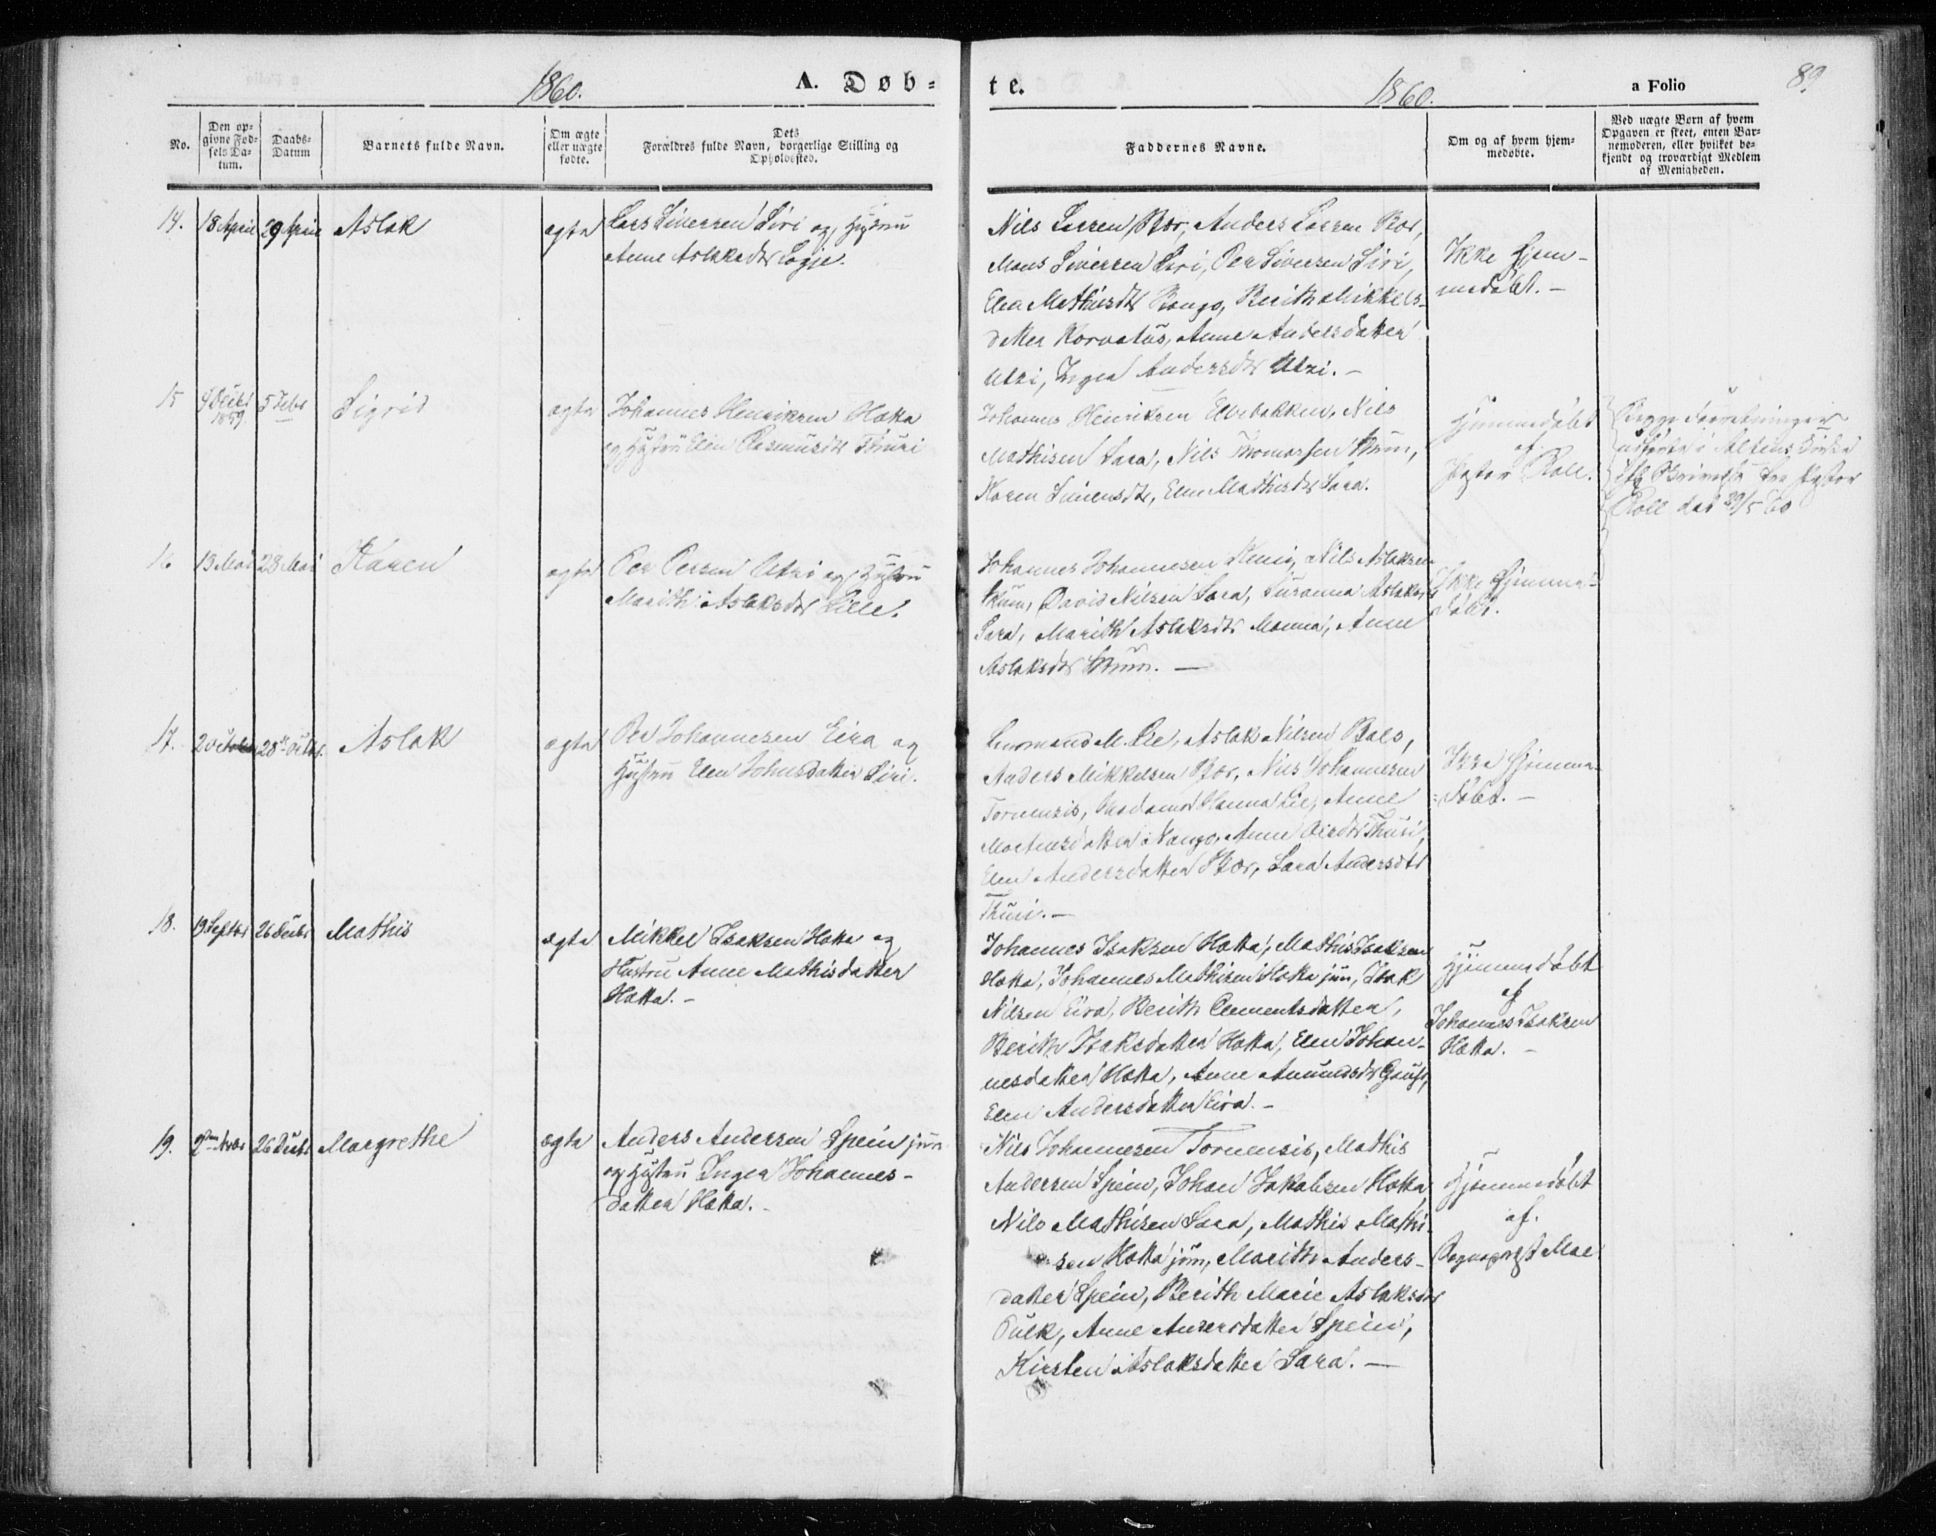 1860.
A. Døb-
te.
1860.
a Folio
89
No.
Den op-
givne Fød-
sels Da-
tum.
Daabs-
Datum
Barnets fulde Navn.
Om ægte
eller uægte
fødte.
Dets
Forældres fulde Navn, borgerlige Stilling og
Opholdssted.
Faddernes Navne.
Om og af hvem hjem-
medøbte.
Ved uægte Børn af hvem
Opgaven er skeet, enten Bar-
nemoderen, eller hvilket be-
kjendt og troværdigt Medlem
af Menigheden.
14.
18 April
29 April
Aslak
ægte
Lars Siversen Siri og Hustru
Anne Aslaksdtr Logje.
Nils Larsen Bær, Anders Larsen Bær,
Mons Siversen Siri, Per Siversen Siri,
Elen Mathisdtr Bongo, Berith Mikkels-
datter Korvatus, Anne Andersdatter
Utzi, Inger Andersdtr Utzi. -
Ikke Hjem-
medøbt. -
15
9 Decbr
1859
5 Febr
Sigrid
ægte
Johannes Henriksen Hætta
og Hustru Elen Rasmusdtr Thuuri
Johannes Henriksen Elvebakken, Nils
Mathisen Sara, Nils Thomassen Skum,
Karen Simensdtr, Elen Mathisdtr Sara.
Hjemmedøbt
af
Pastor Roll.
Begge Forretninger
udførte i Altens Kirke
Pastor
Roll dat 29/5 60
16
13 Mai
28 Mai
Karen
ægte
Per Persen Utzi og Hustru
Marith Aslaksdtr Lille.
Johannes Johannesen Kemi, Nils Aslaksen
Skum, David Nilsen Sara, Susanna Aslaksd
Sara, Marith Aslaksdtr Manna, Anne
Aslaksdtr Skum. -
Ikke Hjemme-
døbt.
17.
28de Octbr.
Aslak
ægte
Per Johannesen Eira og
Hustru Elen Johnsdatter Siri.
M. Lie, Aslak Nilsen Bals,
Anders Mikkelsen Bær, Nils Johannesen
Tornensis, Madame Hanna Lie, Anne
Mortensdatter Nango, Anne Persdtr Thuri,
Elen Andersdatter Bær, Sara Andersdtr
Thuri. -
Ikke Hjemme-
døbt. -
18.
19 Septbr
26 Decbr
Mathis
ægte
Mikkel Isaksen Hætta og
Hustru Anne Mathisdatter
Hætta. -
Johannes Isaksen Hætta, Mathis Isaksen
Hætta, Johannes Mathisen Hætta jun, Isak
Nilsen Eira, Berith Clementsdatter,
Berith Isaksdatter Hætta, Elen Johan-
nesdatter Hætta, Anne Amundsdtr Gaup,
Elen Andersdatter Eira. -
Hjemmedøbt
af
Johannes Isaksen
Hætta. -
19.
26 Decbr
Margrethe
ægte
Anders Andersen Spein jun
og Hustru Inger Johannes-
datter Hætta. -
Nils Johannesen Tornensis, Mathis
Andersen Spein, Johan Jakobsen Hætta,
Nils Mathisen Sara, Mathis Mathi-
sen Hætta jun, Marith Anders-
datter Spein, Berith Marie Aslaksdtr
Pulk, Anne Andersdatter Spein,
Kirsten Aslaksdatter Sara. -
Hjemmedøbt
af.
Sogneprest Moe